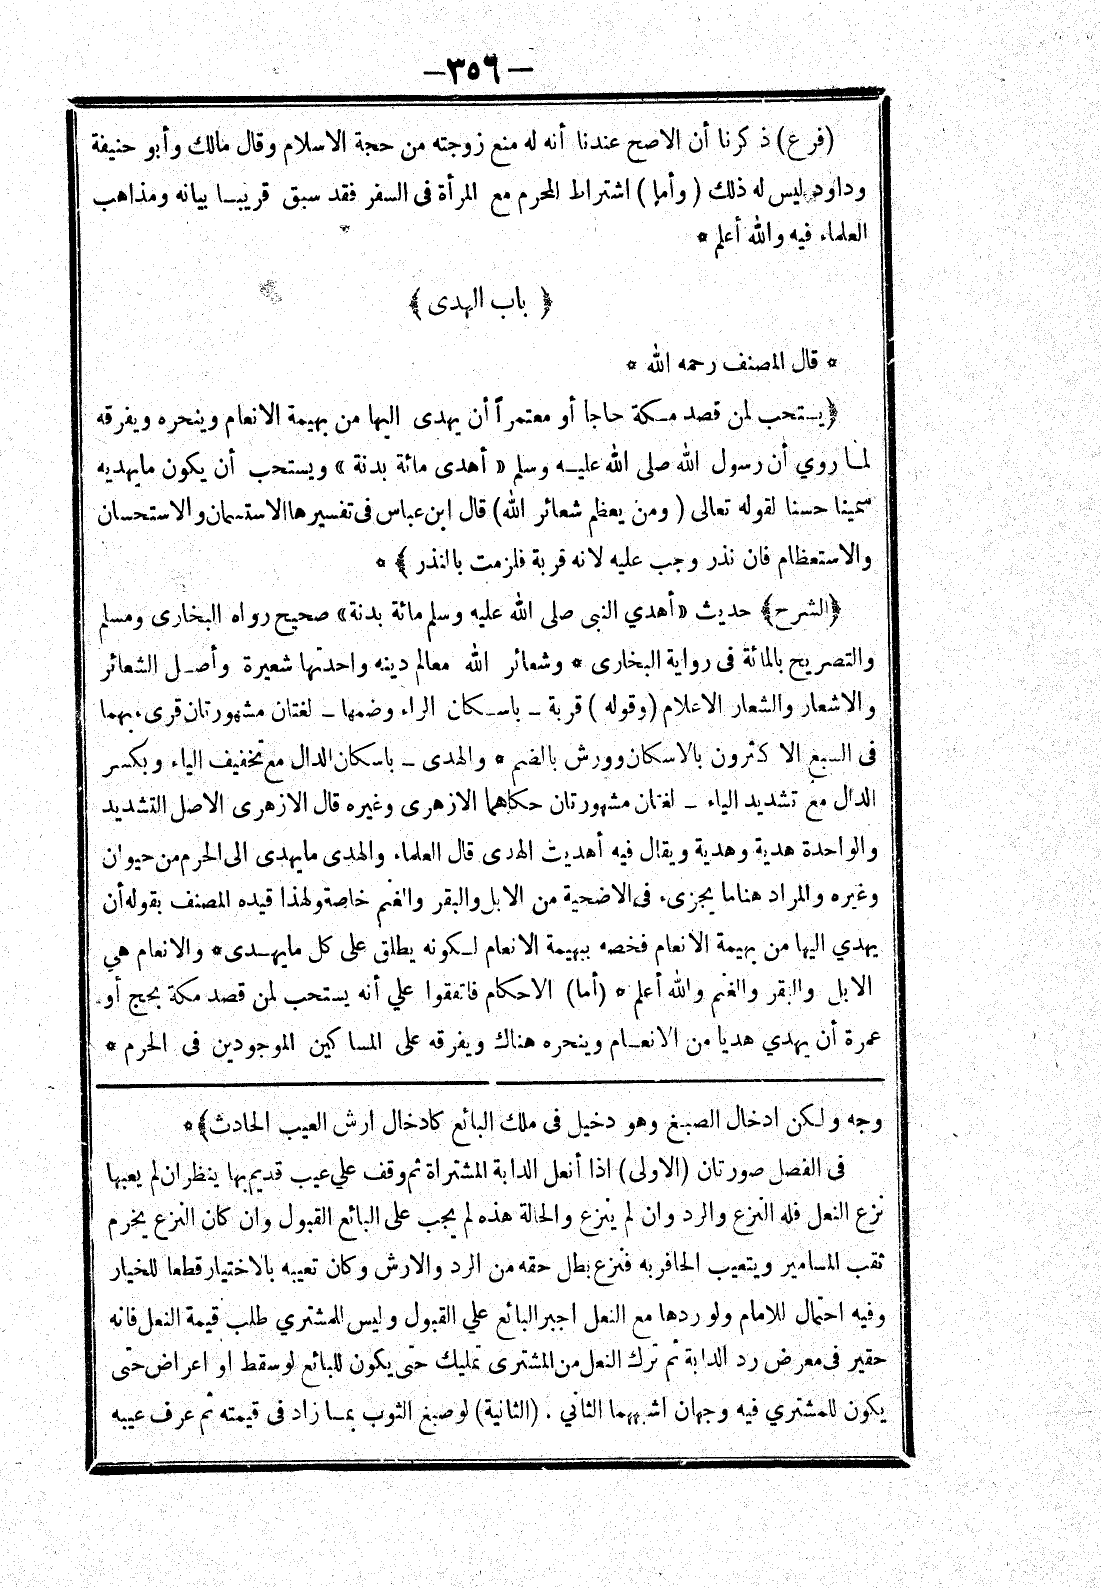 — ٣٥٦ —
(فرع) ذكرنا أن الاصح عندنا أنه له منع زوجته من حجة الاسلام وقال مالك وأبو حنيفة
وداود ليس له ذلك (وأما) اشتراط المحرم مع المرأة فى السفر فقد سبق قريبا بيانه ومذاهب
العلماء فيه والله أعلم *
﴿ باب الهدى ﴾
* قال المصنف رحمه الله *
﴿يستحب لمن قصد مكة حاجا أو معتمراً أن يهدى اليها من بهيمة الانعام وينحره ويفرقه
لما روي أن رسول الله صلى الله عليه وسلم « أهدى مائة بدنة » ويستحب أن يكون مايهديه
سمينا حسنا لقوله تعالى ( ومن يعظم شعائر الله) قال ابن عباس فى تفسيرها الاستسمان والاستحسان
والاستعظام فان نذر وجب عليه لانه قربة فلزمت بالنذر ﴾ *
﴿الشرح﴾ حديث «أهدي النبى صلى الله عليه وسلم مائة بدنة» صحيح رواه البخارى ومسلم
والتصريح بالمائة فى رواية البخارى * وشعائر الله معالم دينه واحدتها شعيرة وأصل الشعائر
والاشعار والشعار الاعلام (وقوله ) قربة ــ باسكان الراء وضمها ــ لغتان مشهورتان قرىء بهما
فى السبع الاكثرون بالاسكان وورش بالضم * والهدى ــ باسكان الدال مع تخفيف الياء وبكسر
الدال مع تشديد الياء ــ لغتان مشهورتان حكاهما الازهرى وغيره قال الازهرى الاصل التشديد
والواحدة هدية وهدية ويقال فيه أهديث الهدى قال العلماء والهدى مايهدى الى الحرم من حيوان
وغيره والمراد هنا ما يجزىء فى الاضحية من الابل والبقر والغنم خاصة ولهذا قيده المصنف بقوله أن
يهدي اليها من بهيمة الانعام فخصه ببهيمة الانعام لكونه يطلق على كل مايهدى* والانعام هي
الابل والبقر والغنم والله أعلم * (أما) الاحكام فاتفقوا علي أنه يستحب لمن قصد مكة بحج أو
عمرة أن يهدي هديا من الانعام وينحره هناك ويفرقه على المساكين الموجودين فى الحرم *
وجه ولكن ادخال الصبغ وهو دخيل فى ملك البائع كادخال ارش العيب الحادث﴾*
فى الفصل صورتان (الاولى) اذا أنعل الدابة المشتراة ثم وقف علي عيب قديم بها ينظر ان لم يعبها
نزع النعل فله النزع والرد وان لم ينزع والحالة هذه لم يجب على البائع القبول وان كان النزع يخرم
ثقب المسامير ويتعيب الحافر به فنزع بطل حقه من الرد والارش وكان تعييبه بالاختيار قطعا للخيار
وفيه احتمال للامام ولو ردها مع النعل اجبر البائع علي القبول وليس للمشتري طلب قيمة النعل فانه
حقير فى معرض رد الدابة ثم ترك النعل من المشترى تمليك حتى يكون للبائع لو سقط او اعراض حتى
يكون للمشتري فيه وجهان اشبههما الثاني . (الثانية) لو صبغ الثوب بما زاد فى قيمته ثم عرف عيبه